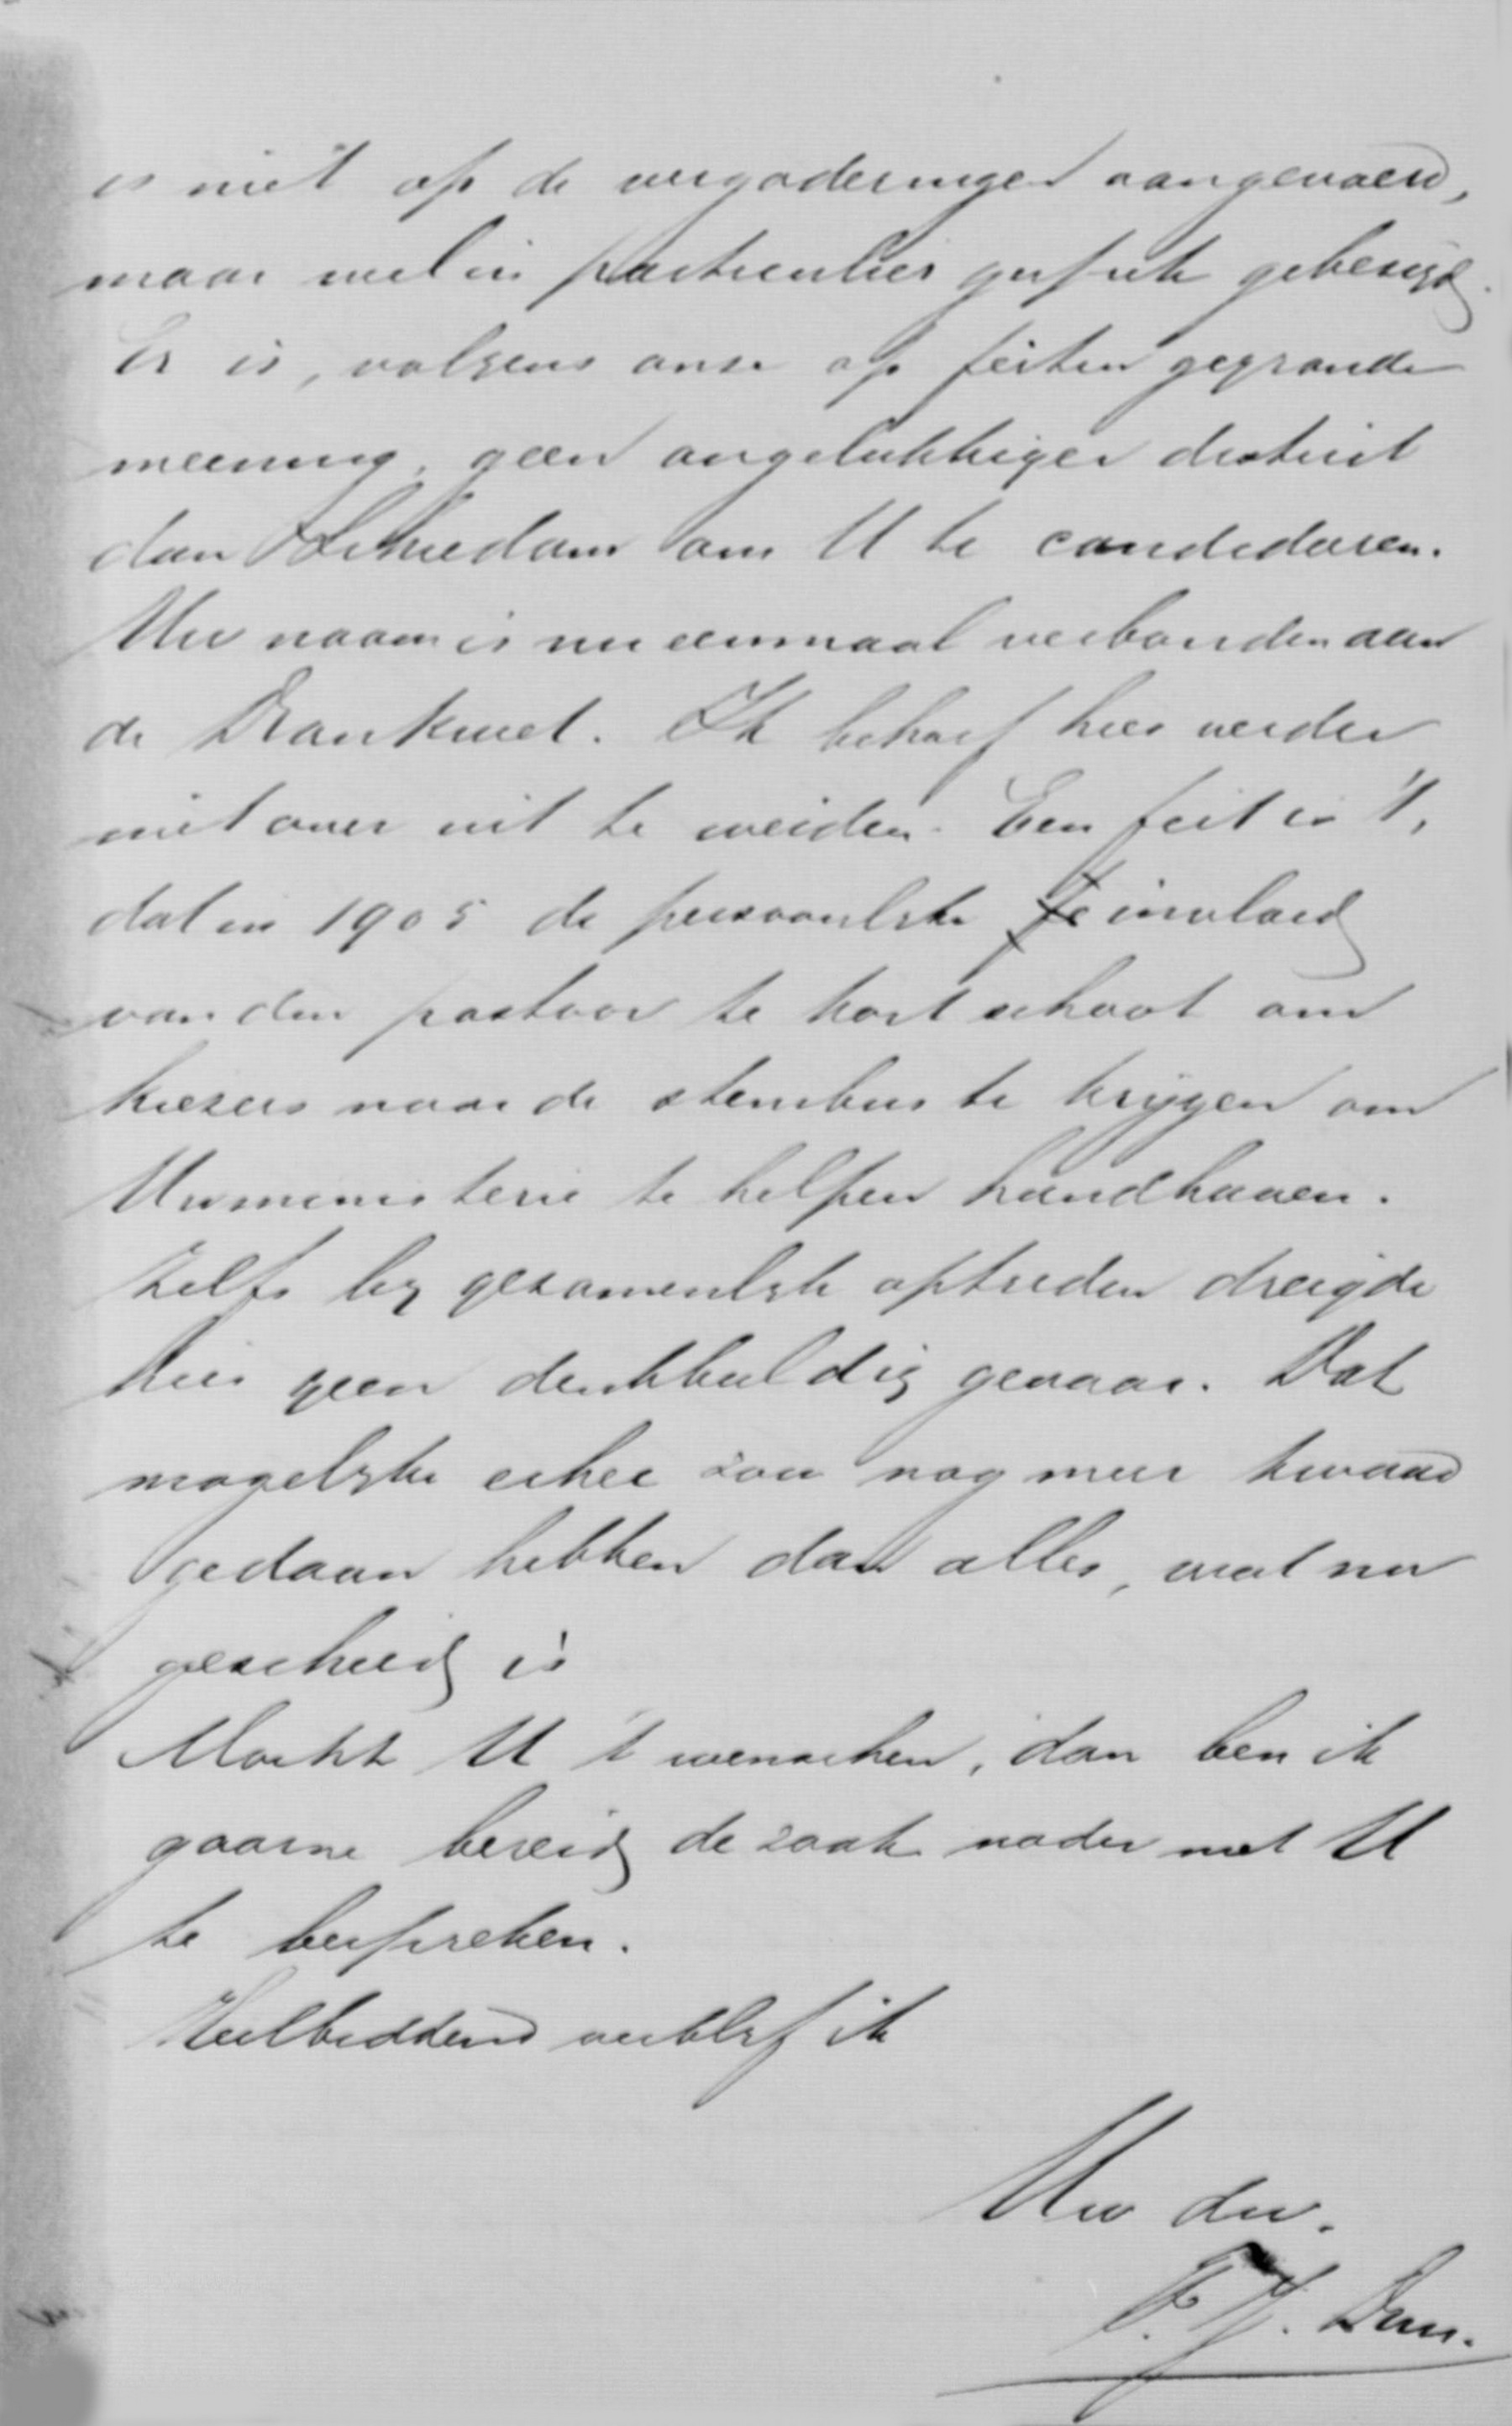 is niet op de vergaderingen aangevoerd,
maar wel in particulier gesprek gebezigd.
Er is, volgens onze op feiten gegronde
meening, geen ongelukkiger district
dan Schiedam om U te candideeren.
Uw naam is nu eenmaal verbonden aan
de Drankwet. Ik behoef hier verder
niet over uit te weiden. Een feit is 't,
dat in 1905 de persoonlijke invloed
van den pastoor te kort schoot om
kiezers naar de stembus te krijgen om
Uw ministerie te helpen handhaven.
Zelfs bij gezamenlijk optreden dreigde
hier geen denkbeeldig gevaar. Dat
mogelijke echec zou nog meer kwaad
gedaan hebben dan alles, wat nu
geschied is
Mocht U 't wenschen, dan ben ik
gaarne bereid de zaak nader met U
te bespreken.
Heilbiddend verblijf ik
Uw dw.